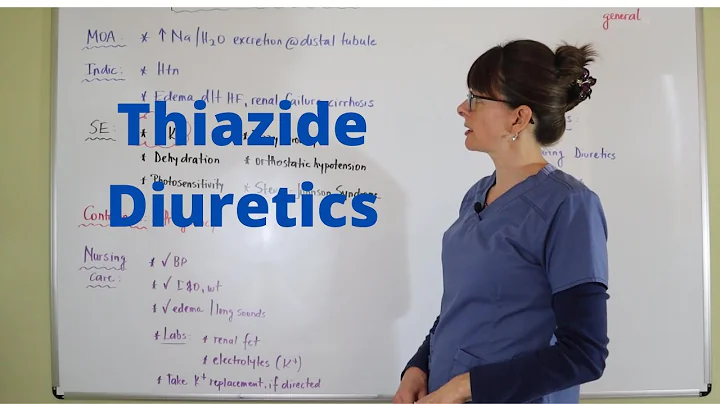 general
MOA: * ↑ Na/H₂O excretion @ distal tubule
Indic: * Htn
* Edema d/t HF, renal failure, cirrhosis
Thiazide
SE: * K
* Dehydration * orthostatic hypotension
* Photosensitivity * Johnson Syndrome
Diuretics
Diuretics
Nursing Care: * ✓ BP
* ✓ I&O, wt
* ✓ edema / lung sounds
* Labs: * renal fct
* electrolytes (K⁺)
* Take K⁺ replacement, if directed